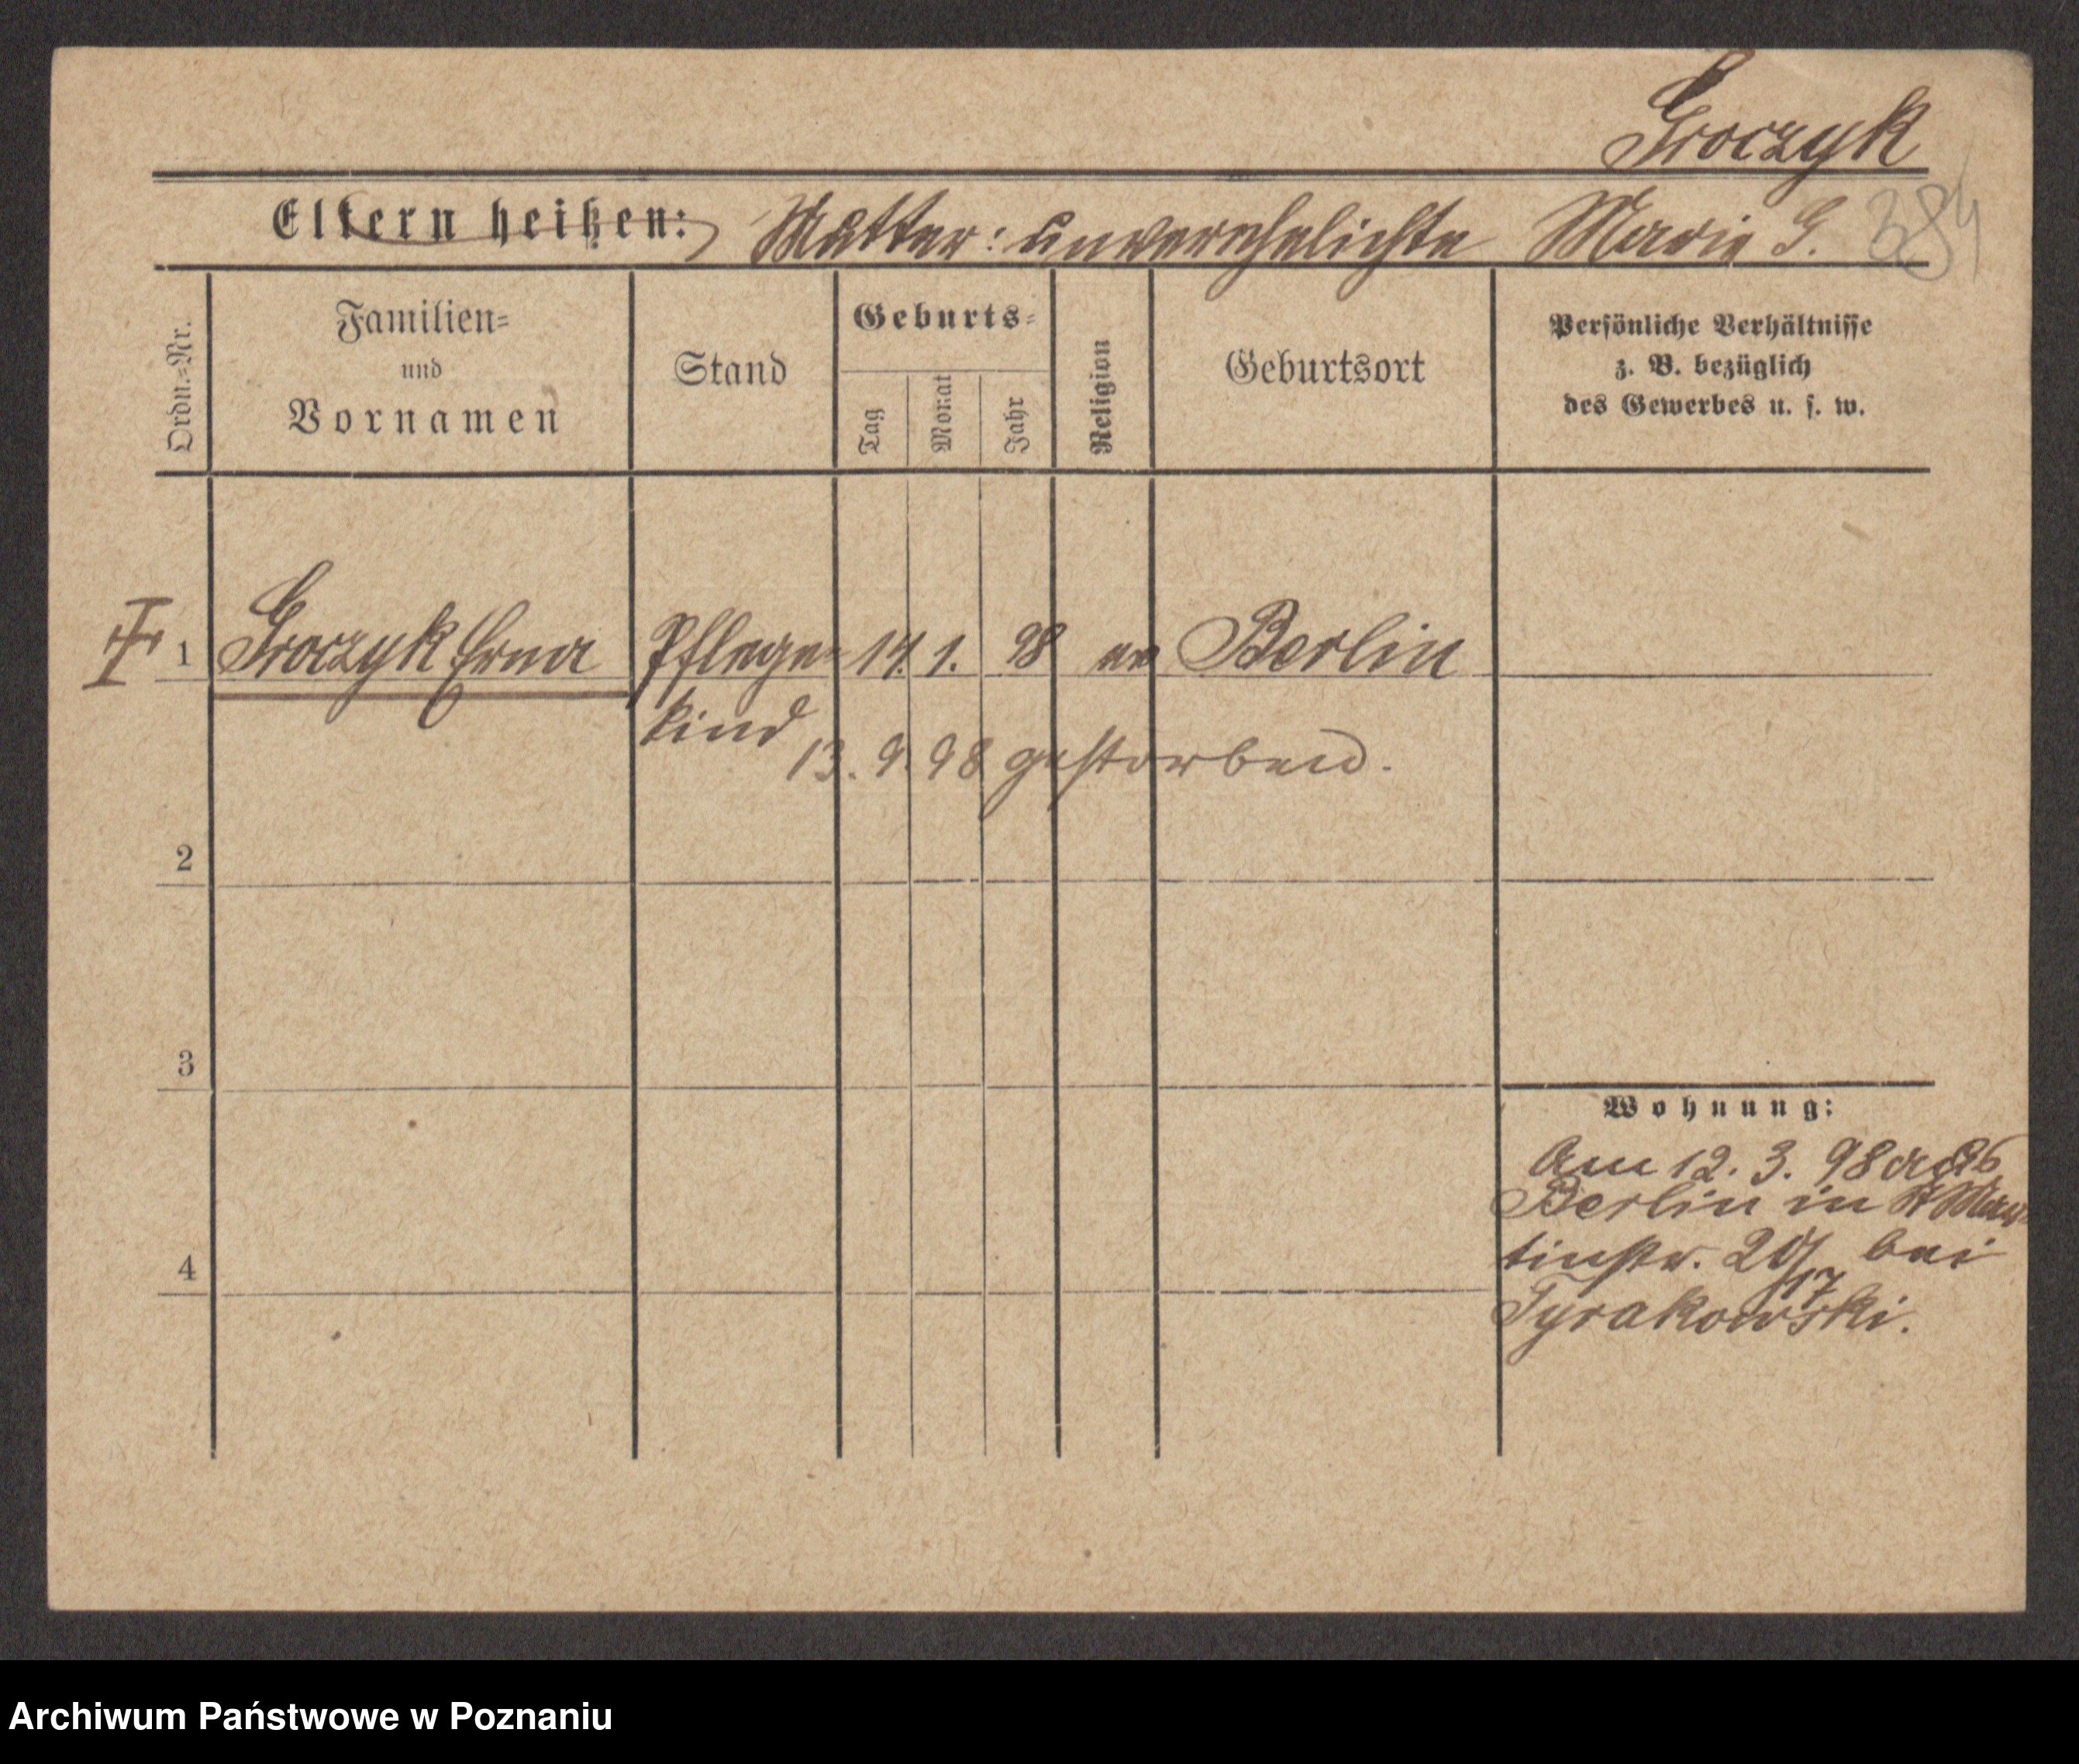 Groczyk
Eltern heißen: Mutter: unverehelichte Marie G. 384
Ordn.-Nr.
Familien- und Vornamen
Stand
Geburts-
Tag
Monat
Jahr
Religion
Geburtsort
Persönliche Verhältnisse
z. B. bezüglich
des Gewerbes u. s. w.
1 Groczyk Erna Pflege- 14. 1. 98 ev Berlin
kind
13. 9. 98 gestorben.
2
3
4
Wohnung:
Am 12. 3. 98 aus
Berlin in St Mar-
tinstr. 20/ bei
17
Tyrakowski.
Archiwum Państwowe w Poznaniu